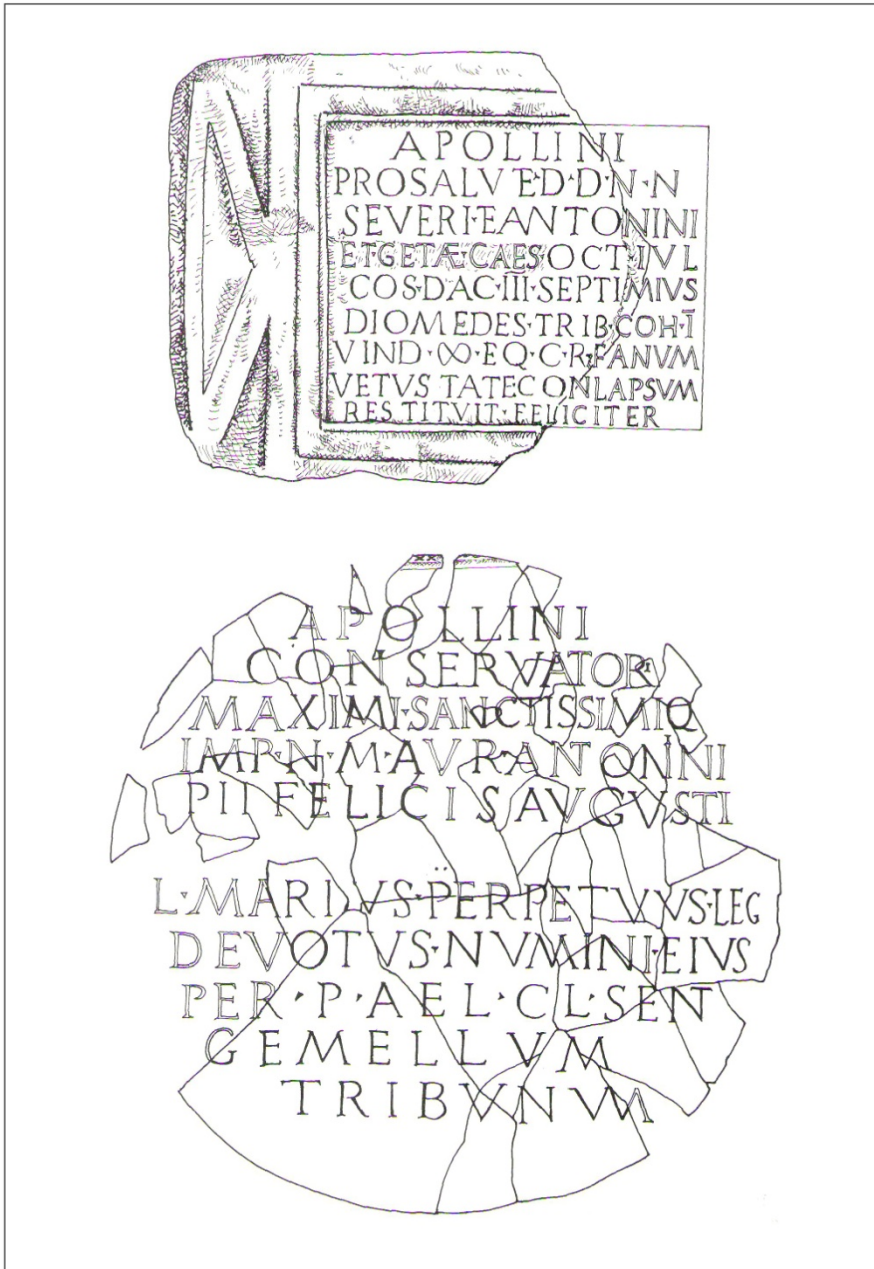 APOLLINI
PRO SALVTE·D·D·N·N
SEVERI·E ANTONINI
ET·GETÆ·CAES·OCT·IVL
COS·DAC·III·SEPTIMIVS
DIOMEDES·TRIB·COH·I
VIND·∞·EQ·C·R·FANVM
VETVSTATE CONLAPSVM
RESTITVIT·FELICITER
APOLLINI
CONSERVATORI
MAXIMI·SANCTISSIMIQ
IMP·N·M·AVR·ANTONNI
PII FELICIS AVGVSTI
L·MARIVS·PERPETVVS·LEG
DEVOTVS·NVMINI·EIVS
PER·P·AEL·CL·SENT
GEMELLVM
TRIBVNVM